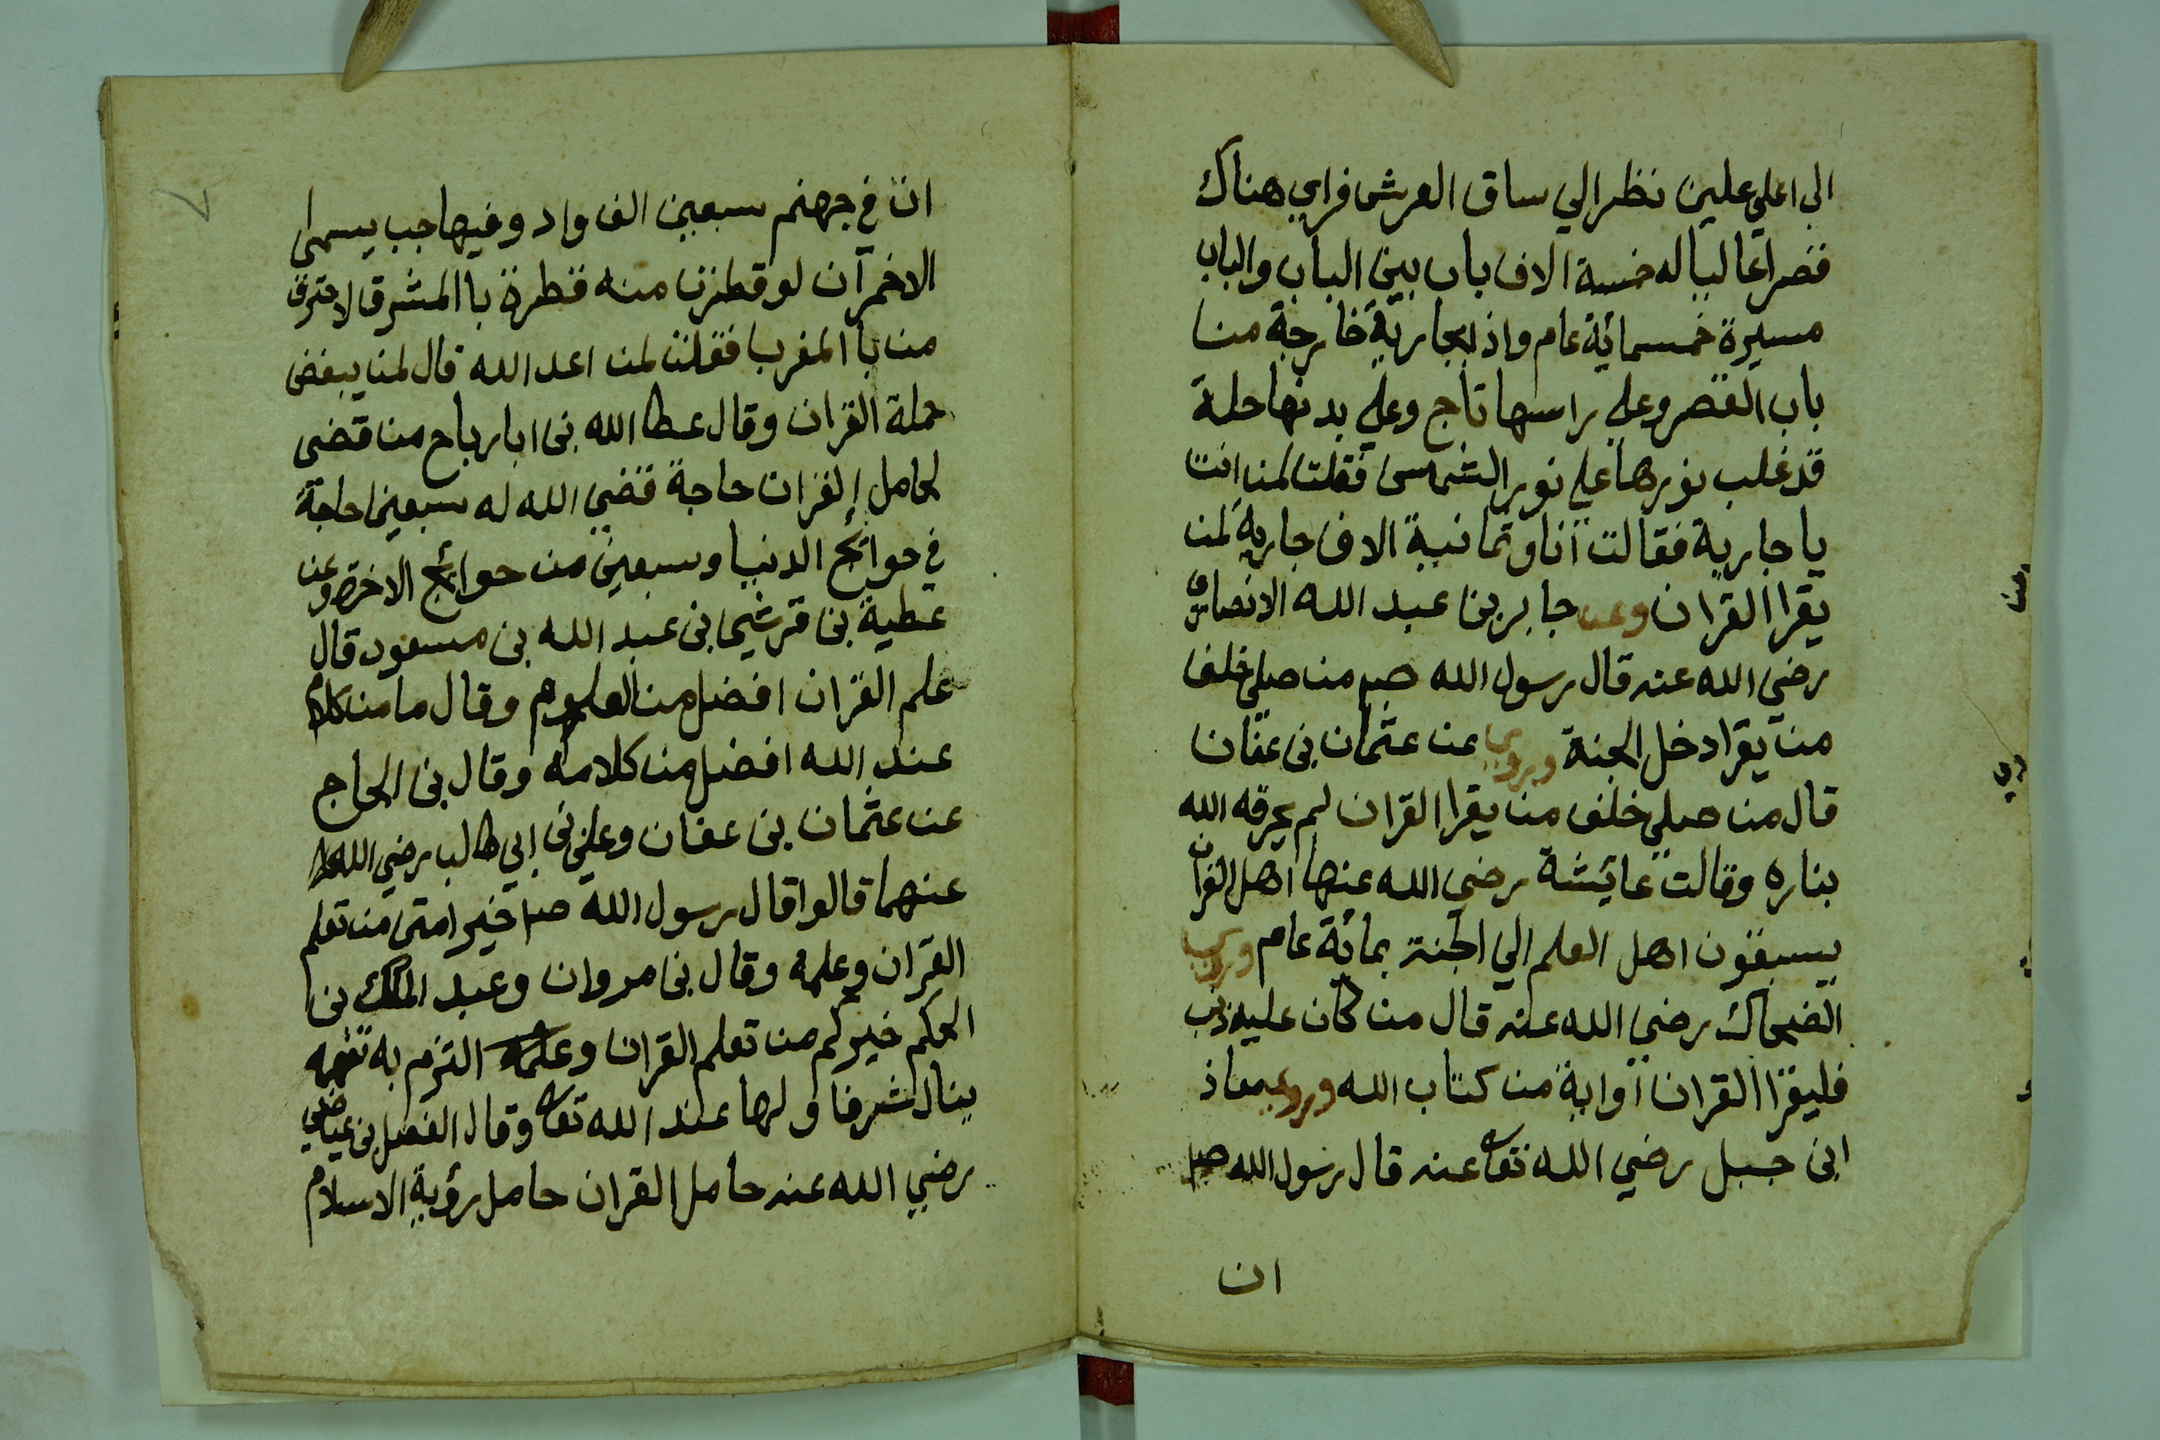 الى اعلي علين نظر الي ساق العرش فراي هناك
قصرا عاليا له خمسة الاف باب بين الباب والباب
مسيرة خمسمائة عام واذ بجارية خارجة من
باب القصر وعلي راسها تاج وعلي بدنها حلة
قد غلب نورها علي نور الشمس فقلت لمن انت
يا جارية فقالت انا وثمانية الاف جارية لمن
يقرا القران وعن جابر بن عبد الله الانصاري
رضي الله عنه قال رسول الله صم من صلي خلف
من يقرا دخل الجنة وروي عن عثمان بن عفان
قال من صلي خلف من يقرا القران لم يحرقه الله
بناره وقالت عايئشة رضي الله عنها اهل القران
يسبقون اهل العلم الي الجنة بمائة عام وروي
الضحاك رضي الله عنه قال من كان عليه ذنب
فليقرا القران اوابة من كتاب الله وروي معاذ
ابن جبل رضي الله تعا عنه قال رسول الله صلم
ان
٧
ان في جهنم سبعين الف واد وفيها جب يسمى
الاخمران لو قطرت منه قطرة با المشرق لاحترق
من با المغرب فقلت لمن اعد الله قال لمن يبغض
حملة القران وقال عطا الله بن ابا رباح من قضى
لحامل القران حاجة قضي الله له سبعين حاجة
في حوائج الدنيا وسبعين من حوائج الاخرة وعن
عطية بن عبد الله بن مسعود قال
علم القران افضل من العلوم وقال ما من كلام
عند الله افضل من كلامه وقال بن الحاج
عن عثمان بن عفان وعلي بن ابي طالب رضي الله
عنهما قالوا قال رسول الله صلم خير امتى من تعلم
القران وعلمه وقال بن مروان وعبد الملك بن
الحكم خيركم من تعلم القران وعلمه التزم به
ينال شرفا ولها عند الله تعا وقال الفضل بن عياض
رضي الله عنه حامل القران حامل رؤية الاسلام